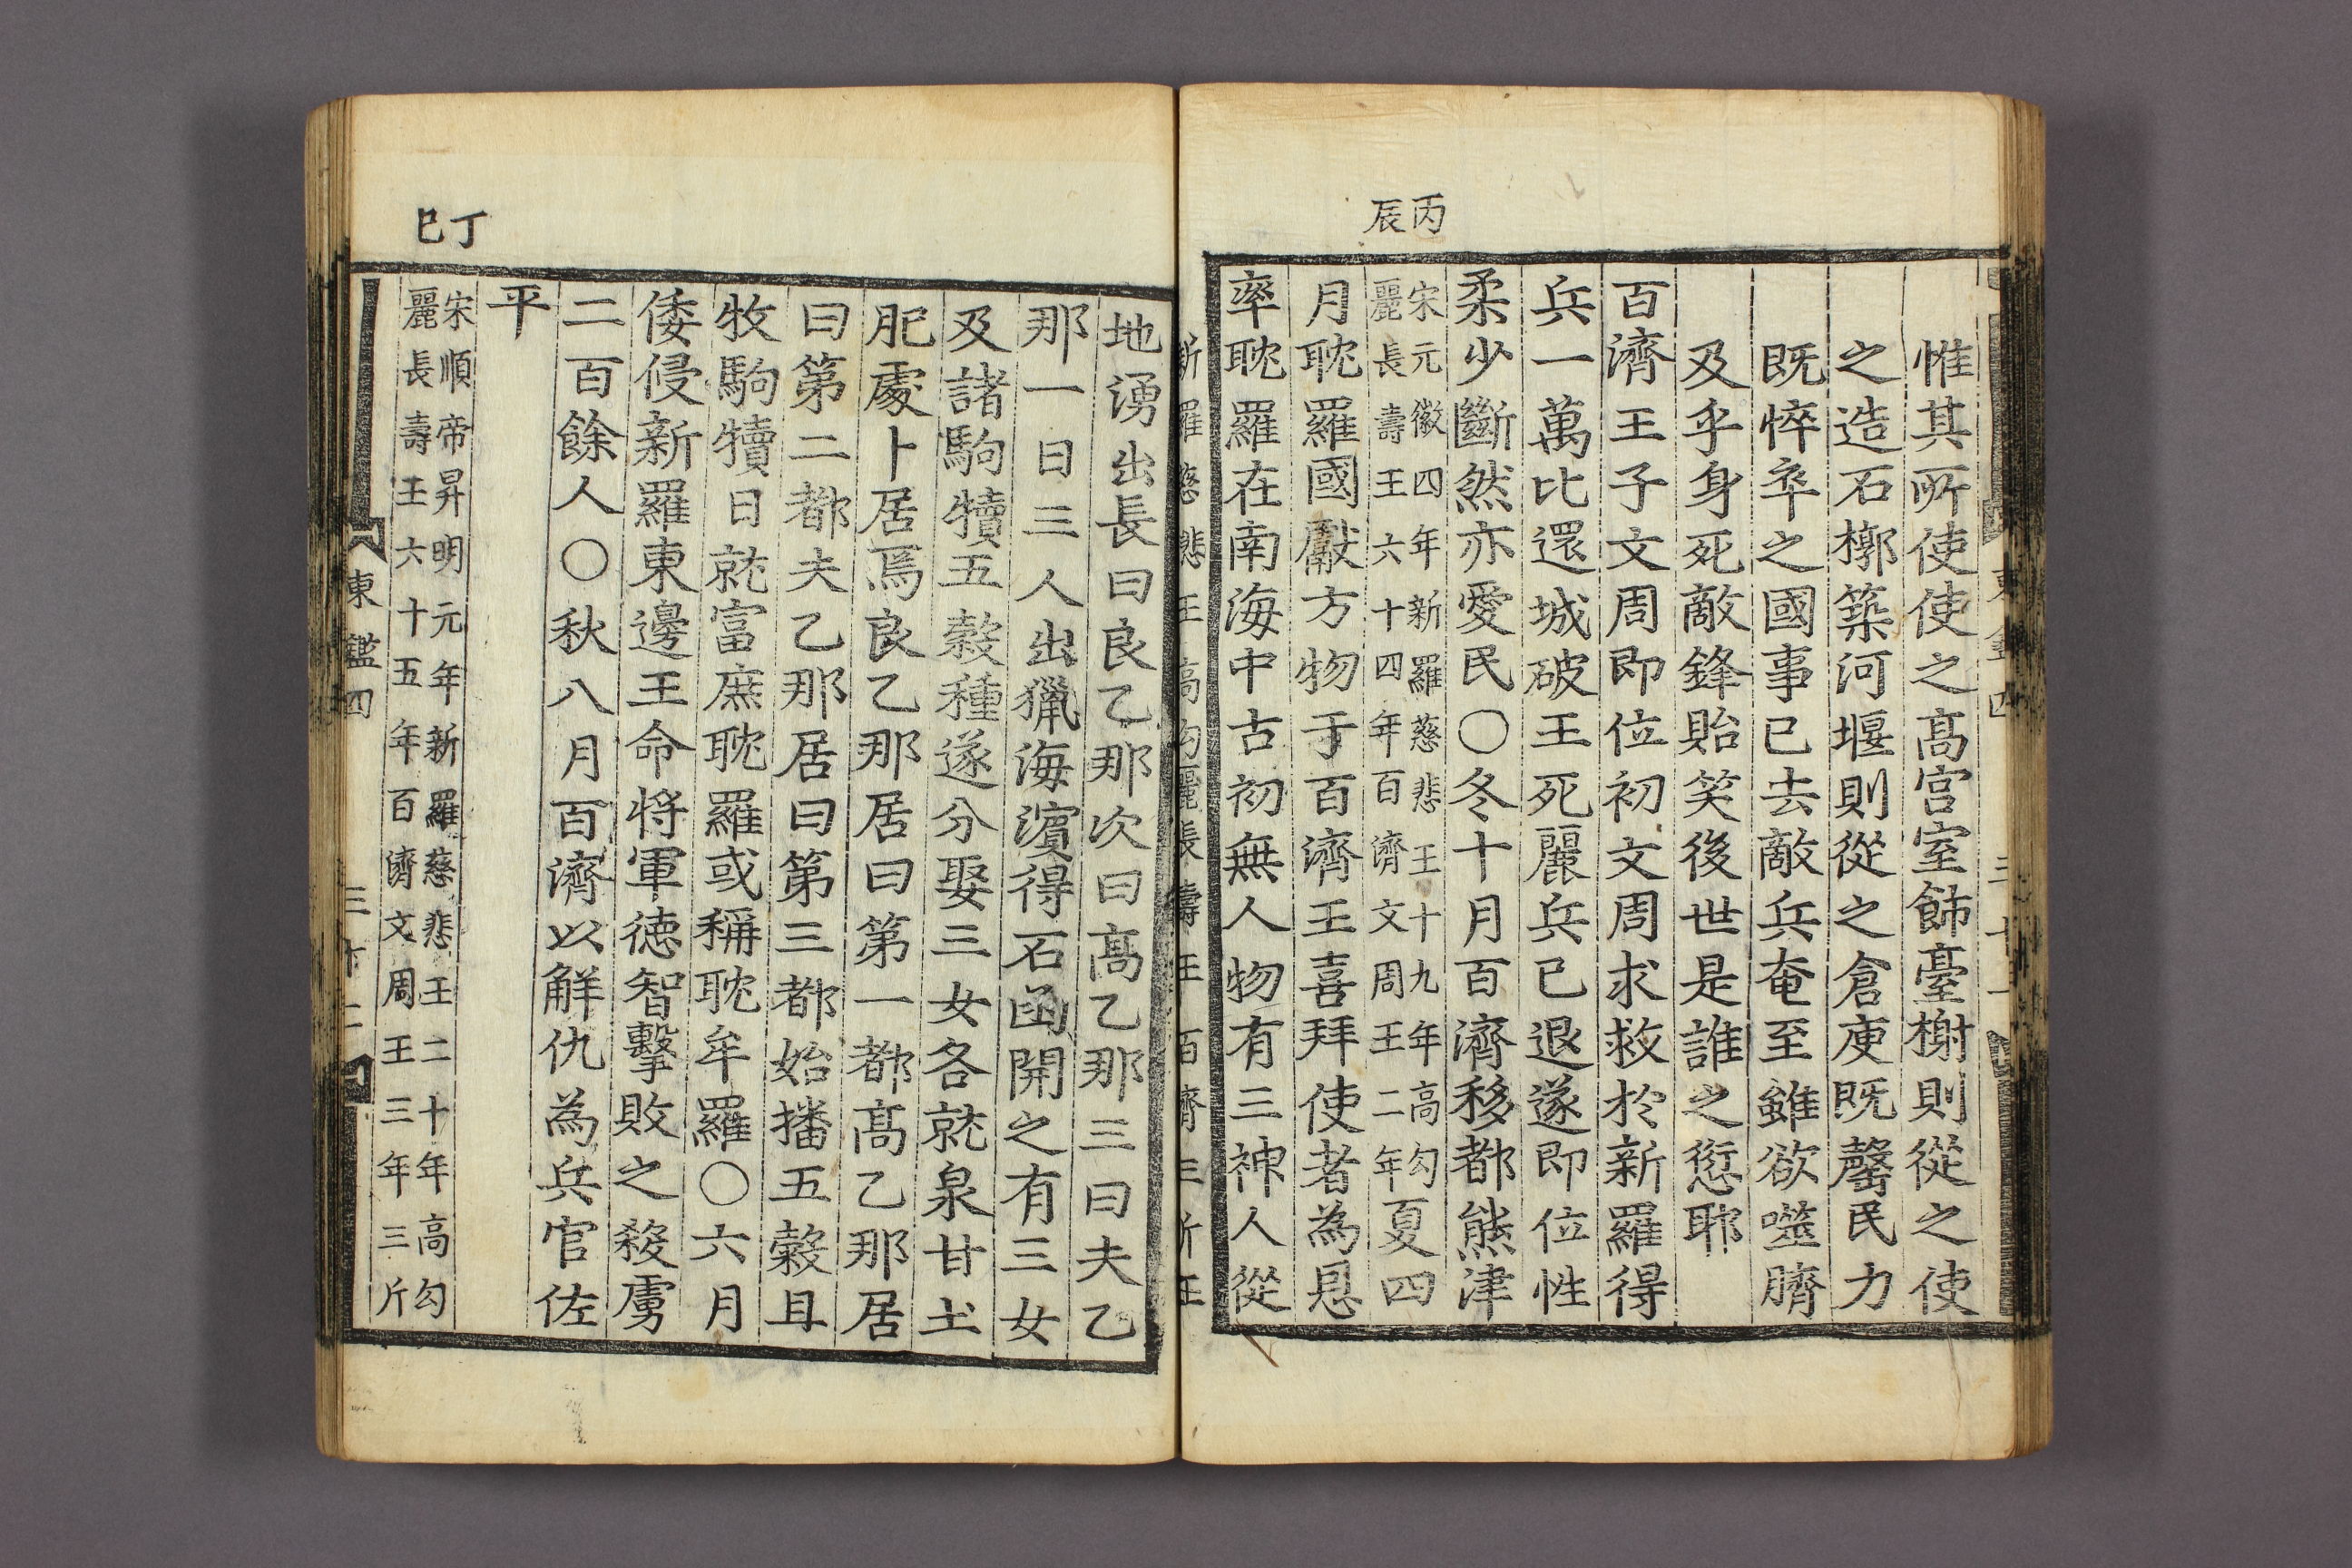 丙辰
惟其所使使之高宮室飾臺榭則從之使
之造石槨築河堰則從之倉庾既罄民力
既悴卒之國事已去敵兵奄至雖欲噬臍
及乎身死敵鋒貽笑後世是誰之愆耶
百濟王子文周即位初文周求救於新羅得
兵一萬比還城破王死麗兵已退遂即位性
柔少斷然亦愛民○冬十月百濟移都熊津
宋元徽四年新羅慈悲王十九年高勾
麗長壽王六十四年百濟文周王二年
夏四
月耽羅國獻方物于百濟王喜拜使者為恩
率耽羅在南海中古初無人物有三神人從
新羅慈悲王 高勾麗長壽王 百濟三斤王
丁巳
地湧出長曰良乙那次曰高乙那三曰夫乙
那一日三人出獵海濱得石函開之有三女
及諸駒犢五穀種遂分娶三女各就泉甘土
肥處卜居焉良乙那居曰第一都高乙那居
曰第二都夫乙那居曰第三都始播五穀且
牧駒犢日就富庶耽羅或稱耽牟羅○六月
倭侵新羅東邊王命將軍德智擊敗之殺虜
二百餘人○秋八月百濟以解仇為兵官佐
平
宋順帝昇明元年新羅慈悲王二十年高勾
麗長壽王六十五年百濟文周王三年三斤
東鑑四